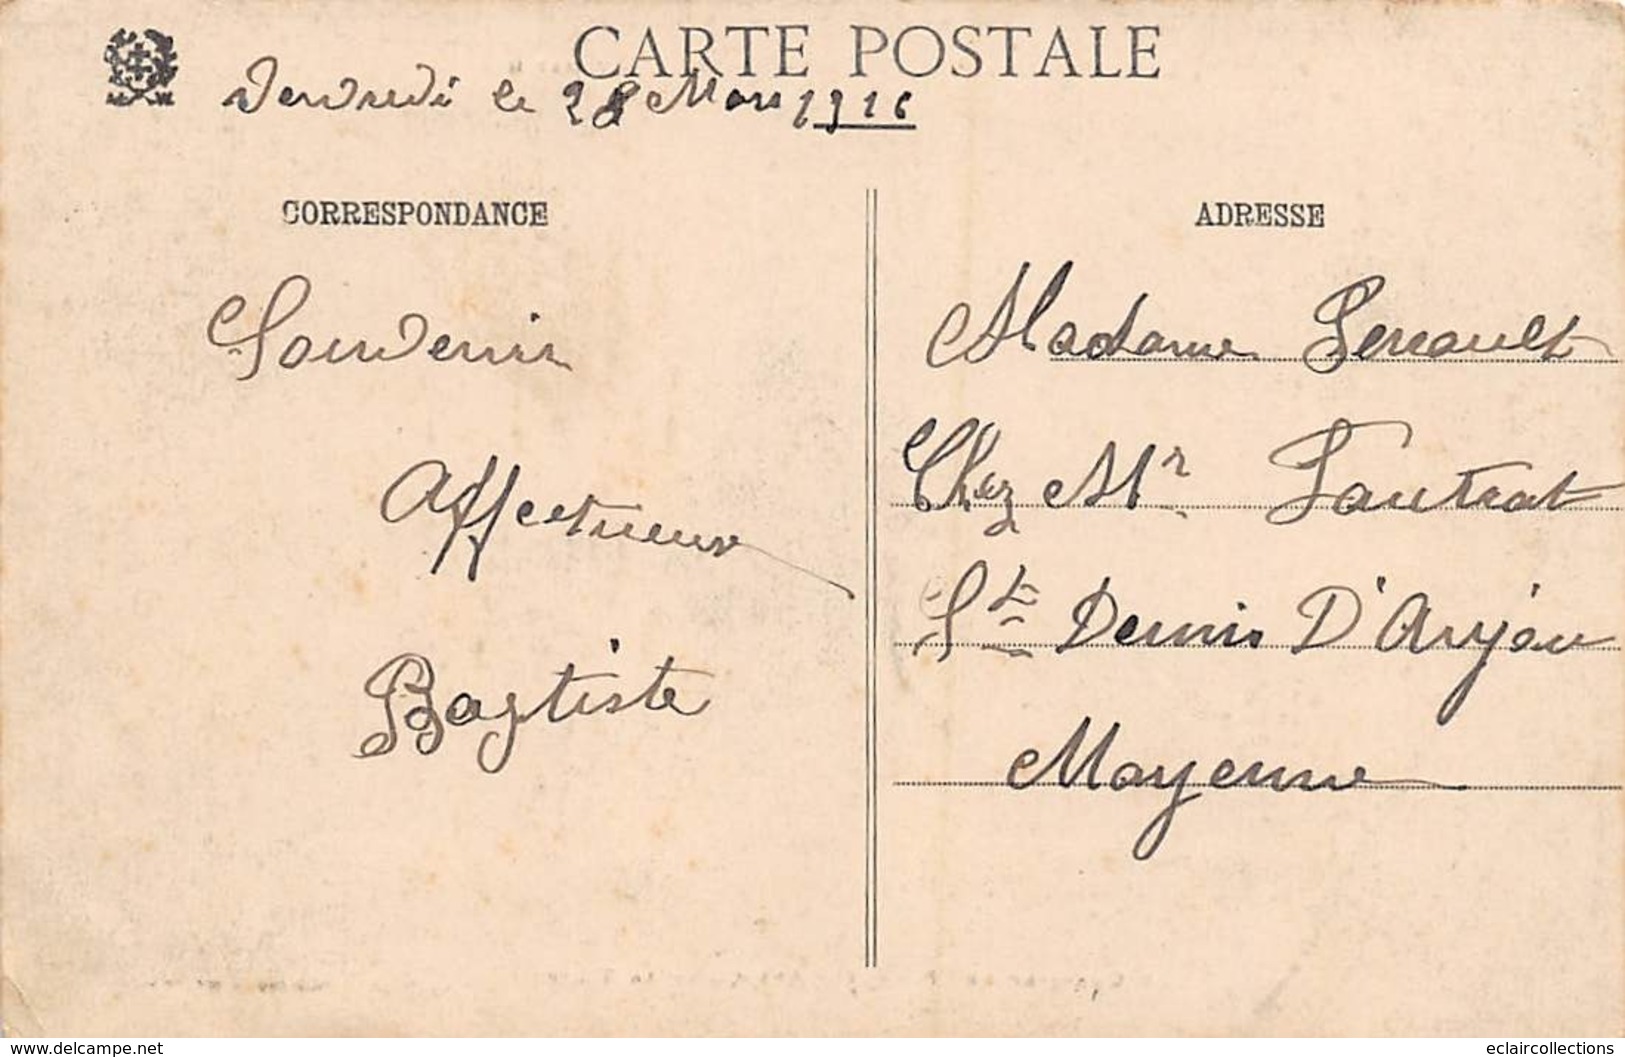 CARTE POSTALE
Vendredi le 28 Mars 1916
CORRESPONDANCE
Souvenir
Affectueux
Baptiste
ADRESSE
Madame
Chez Mr Fautrat
St Dennis D'Anjou
Mayenne
www.delcampe.net
eclaircollections